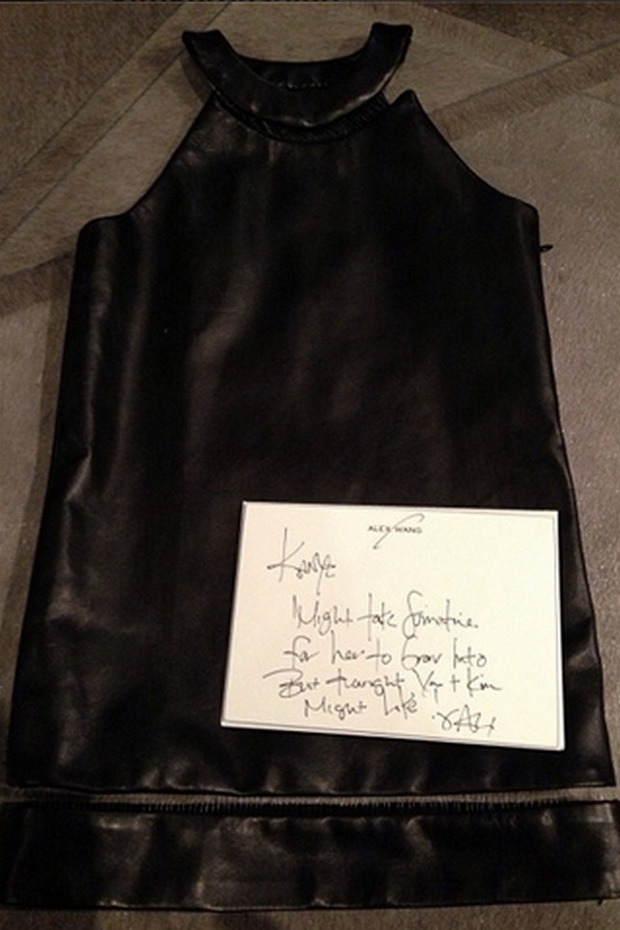 ALEX WANG
Kanye
Might take sometime
for her to Grow Into
But thought You + Kim
Might like. xAlx